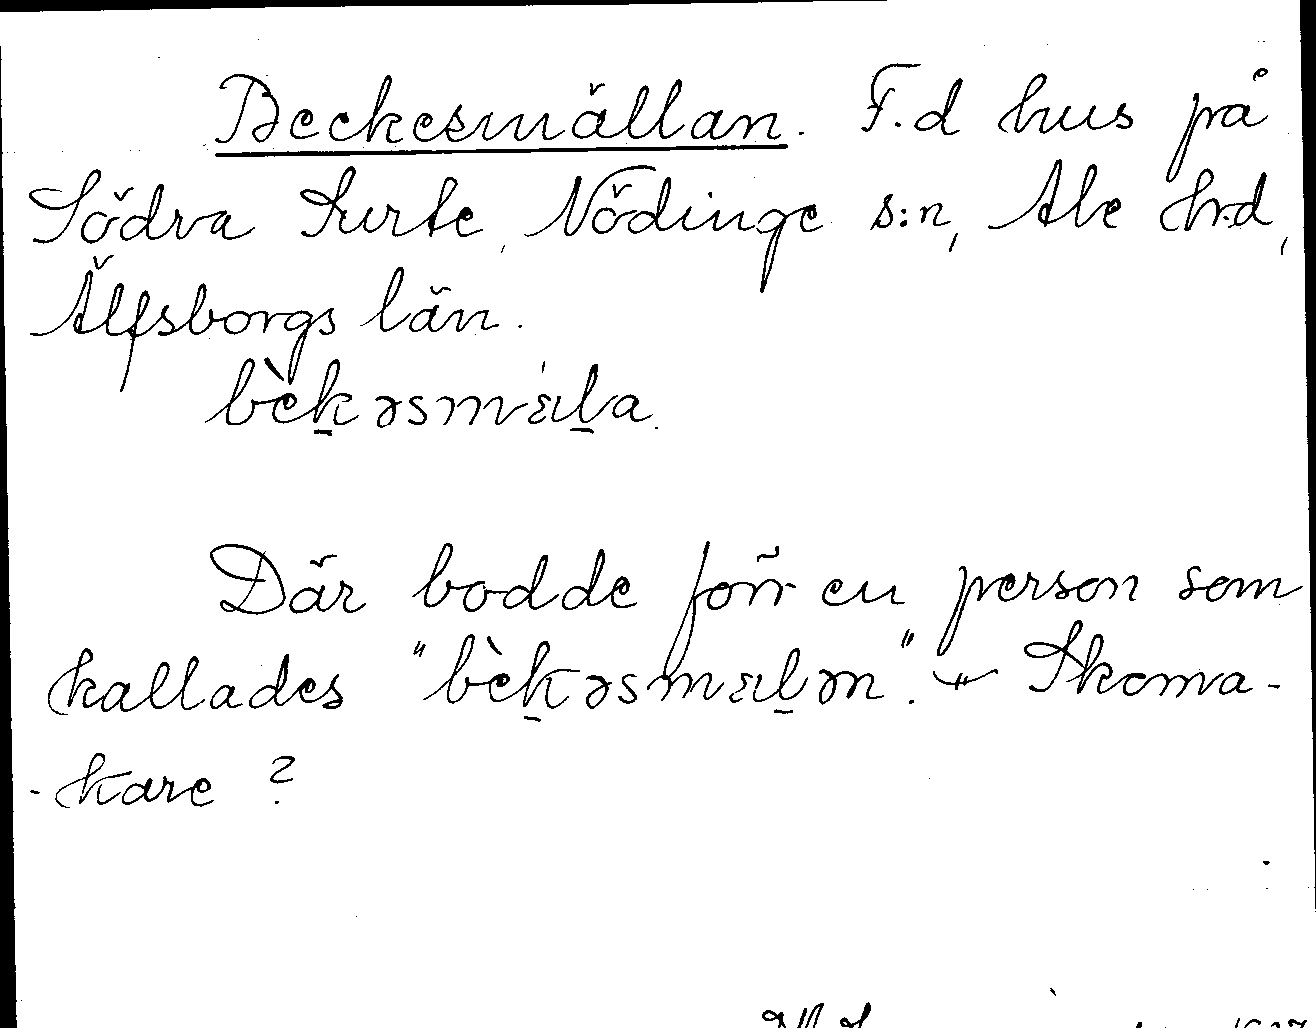 Beckesmällan. F.d hus på
Södra Surte, Nödinge s:n, Ale hrd,
Älfsborgs län.
bèk̲əsmɛ́l̲a.
Där bodde förr en person som
kallades "bèk̲əsmɛl̲ən". – Skoma-
-kare ?